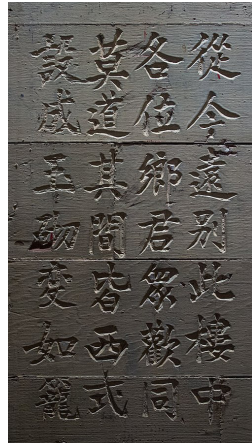 從今遠別此樓中
各位鄉君眾歡同
莫道其間皆西式
設成玉砌變如籠